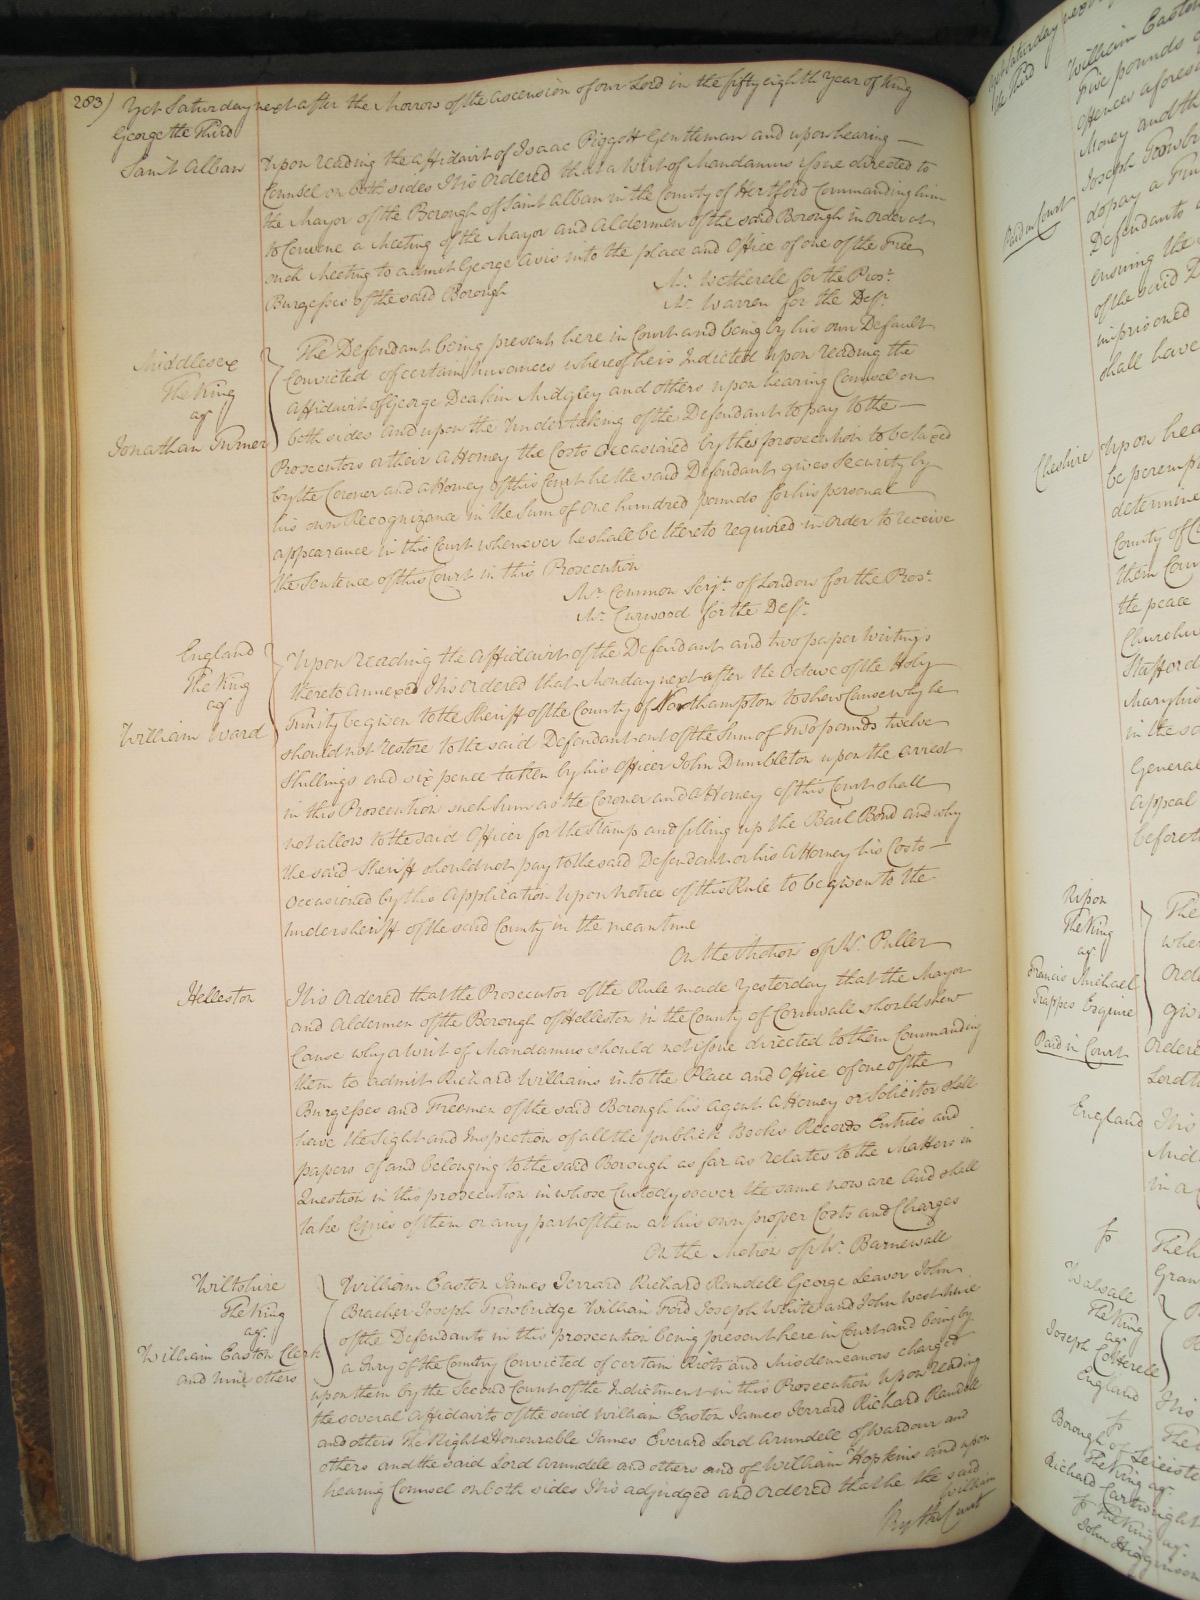 283) Yet Saturday next after the Morrow of the Ascension of our Lord in the fifty eighth Year of King
George the Third
Saint Alban
Upon reading the Affidavit of Isaac Piggott Gentleman and upon hearing
Counsel on both sides It is Ordered that a Writ of Mandamus issue directed to
the Mayor of the Borough of Saint Alban in the County of Hertford Commanding him
to Convene a Meeting of the Mayor and Aldermen of the said Borough in order at
such Meeting to admit George Avis into the place and Office of one of the Free
Burgesses of the said Borough
Mr. Wetherell for the Prosr.
Mr. Warren for the Deft.
Middlesex
The King
agt.
Jonathan Turner
The Defendant being present here in Court and being by his own Default
Convicted of certain Nusances whereof he is Indicted upon reading the
Affidavit of George Deakin Midgley and others upon hearing Counsel on
both sides and upon the Undertaking of the Defendant to pay to the
Prosecutors or their Attorney the Costs occasioned by this prosecution to be taxed
by the Coroner and Attorney of this Court he the said Defendant gives Security by
his own Recognizance in the Sum of One hundred pounds for his personal
appearance in this Court whenever he shall be thereto required in order to receive
the Sentence of this Court in this Prosecution
Mr. Common Serjt. of London for the Prosr.
Mr. Curwood for the Deft.
England
The King
agt.
William Ward
Upon reading the Affidavit of the Defendant and two paper Writings
thereto annexed It is ordered that Monday next after the Octave of the Holy
Trinity be given to the Sheriff of the County of Northampton to shew Cause why he
should not restore to the said Defendant out of the Sum of Two pounds twelve
Shillings and six pence taken by his Officer John Dumbleton upon the arrest
in this Prosecution such Sum as the Coroner and Attorney of this Court shall
not allow to the said Officer for the Stamp and filling up the Bail Bond and why
the said Sheriff should not pay to the said Defendant or his Attorney his Costs
occasioned by this Application Upon Notice of this Rule to be given to the
Undersheriff of the said County in the meantime
On the Motion of Mr. Puller
Helleston
It is Ordered that the Prosecutor of the Rule made Yesterday that the Mayor
and Aldermen of the Borough of Helleston in the County of Cornwall should shew
Cause why a writ of Mandamus should not issue directed to them Commanding
them to admit Richard Williams into the Place and Office of one of the
Burgesses and Freemen of the said Borough his Agent Attorney or Solicitor shall
have the Sight and Inspection of all the publick Books Records Entries and
papers of and belonging to the said Borough as far as relates to the Matters in
Question in this prosecution in whose Custody soever the same now are And shall
take Copies of them or any part of them at his own proper Costs and Charges
On the Motion of Mr. Barnewall
Wiltshire
The King
agt.
William Easton Clerk
and nine others
William Easton James Jerrard Richard Randell George Leaver John
Bracher Joseph Trowbridge William Ford Joseph White and John West nine
of the Defendants in this prosecution being present here in Court and being by
a Jury of the Country Convicted of certain Riots and Misdemeanors charged
upon them by the Second Count of the Indictment in this Prosecution Upon reading
the several Affidavits of the said William Easton James Jerrard Richard Randell
and others The Right Honourable James Everard Lord Arundell of Wardour and
others and the said Lord Arundell and others and of William Hopkins and upon
hearing Counsel on both sides It is adjudged and ordered that he the said
William
By the Court
Yet Saturday next
the Third
William Easton
Five pounds
Offences aforesaid
Money and th
Joseph Trowbri
do pay a Fine
Paid in Court
Defendants
ensuring the
of the said D
imprisoned
shall have
Cheshire
Upon hea
be perempt
determine
County of C
them Coun
the peace
Church
Stafford
in the sa
General
Appeal
before
Ripon
The King
agt.
Francis Michael
Trappes Esquire
Paid in Court
The
when
Orde
giv
Ordered
Lord
England
It is
Mid
in a
The
Gran
Walsall
The King
agt.
Joseph Cotterell
England
It is
The
Borough of Leicester
The King agt.
Richard Cartwright
The King agt.
John Higginson